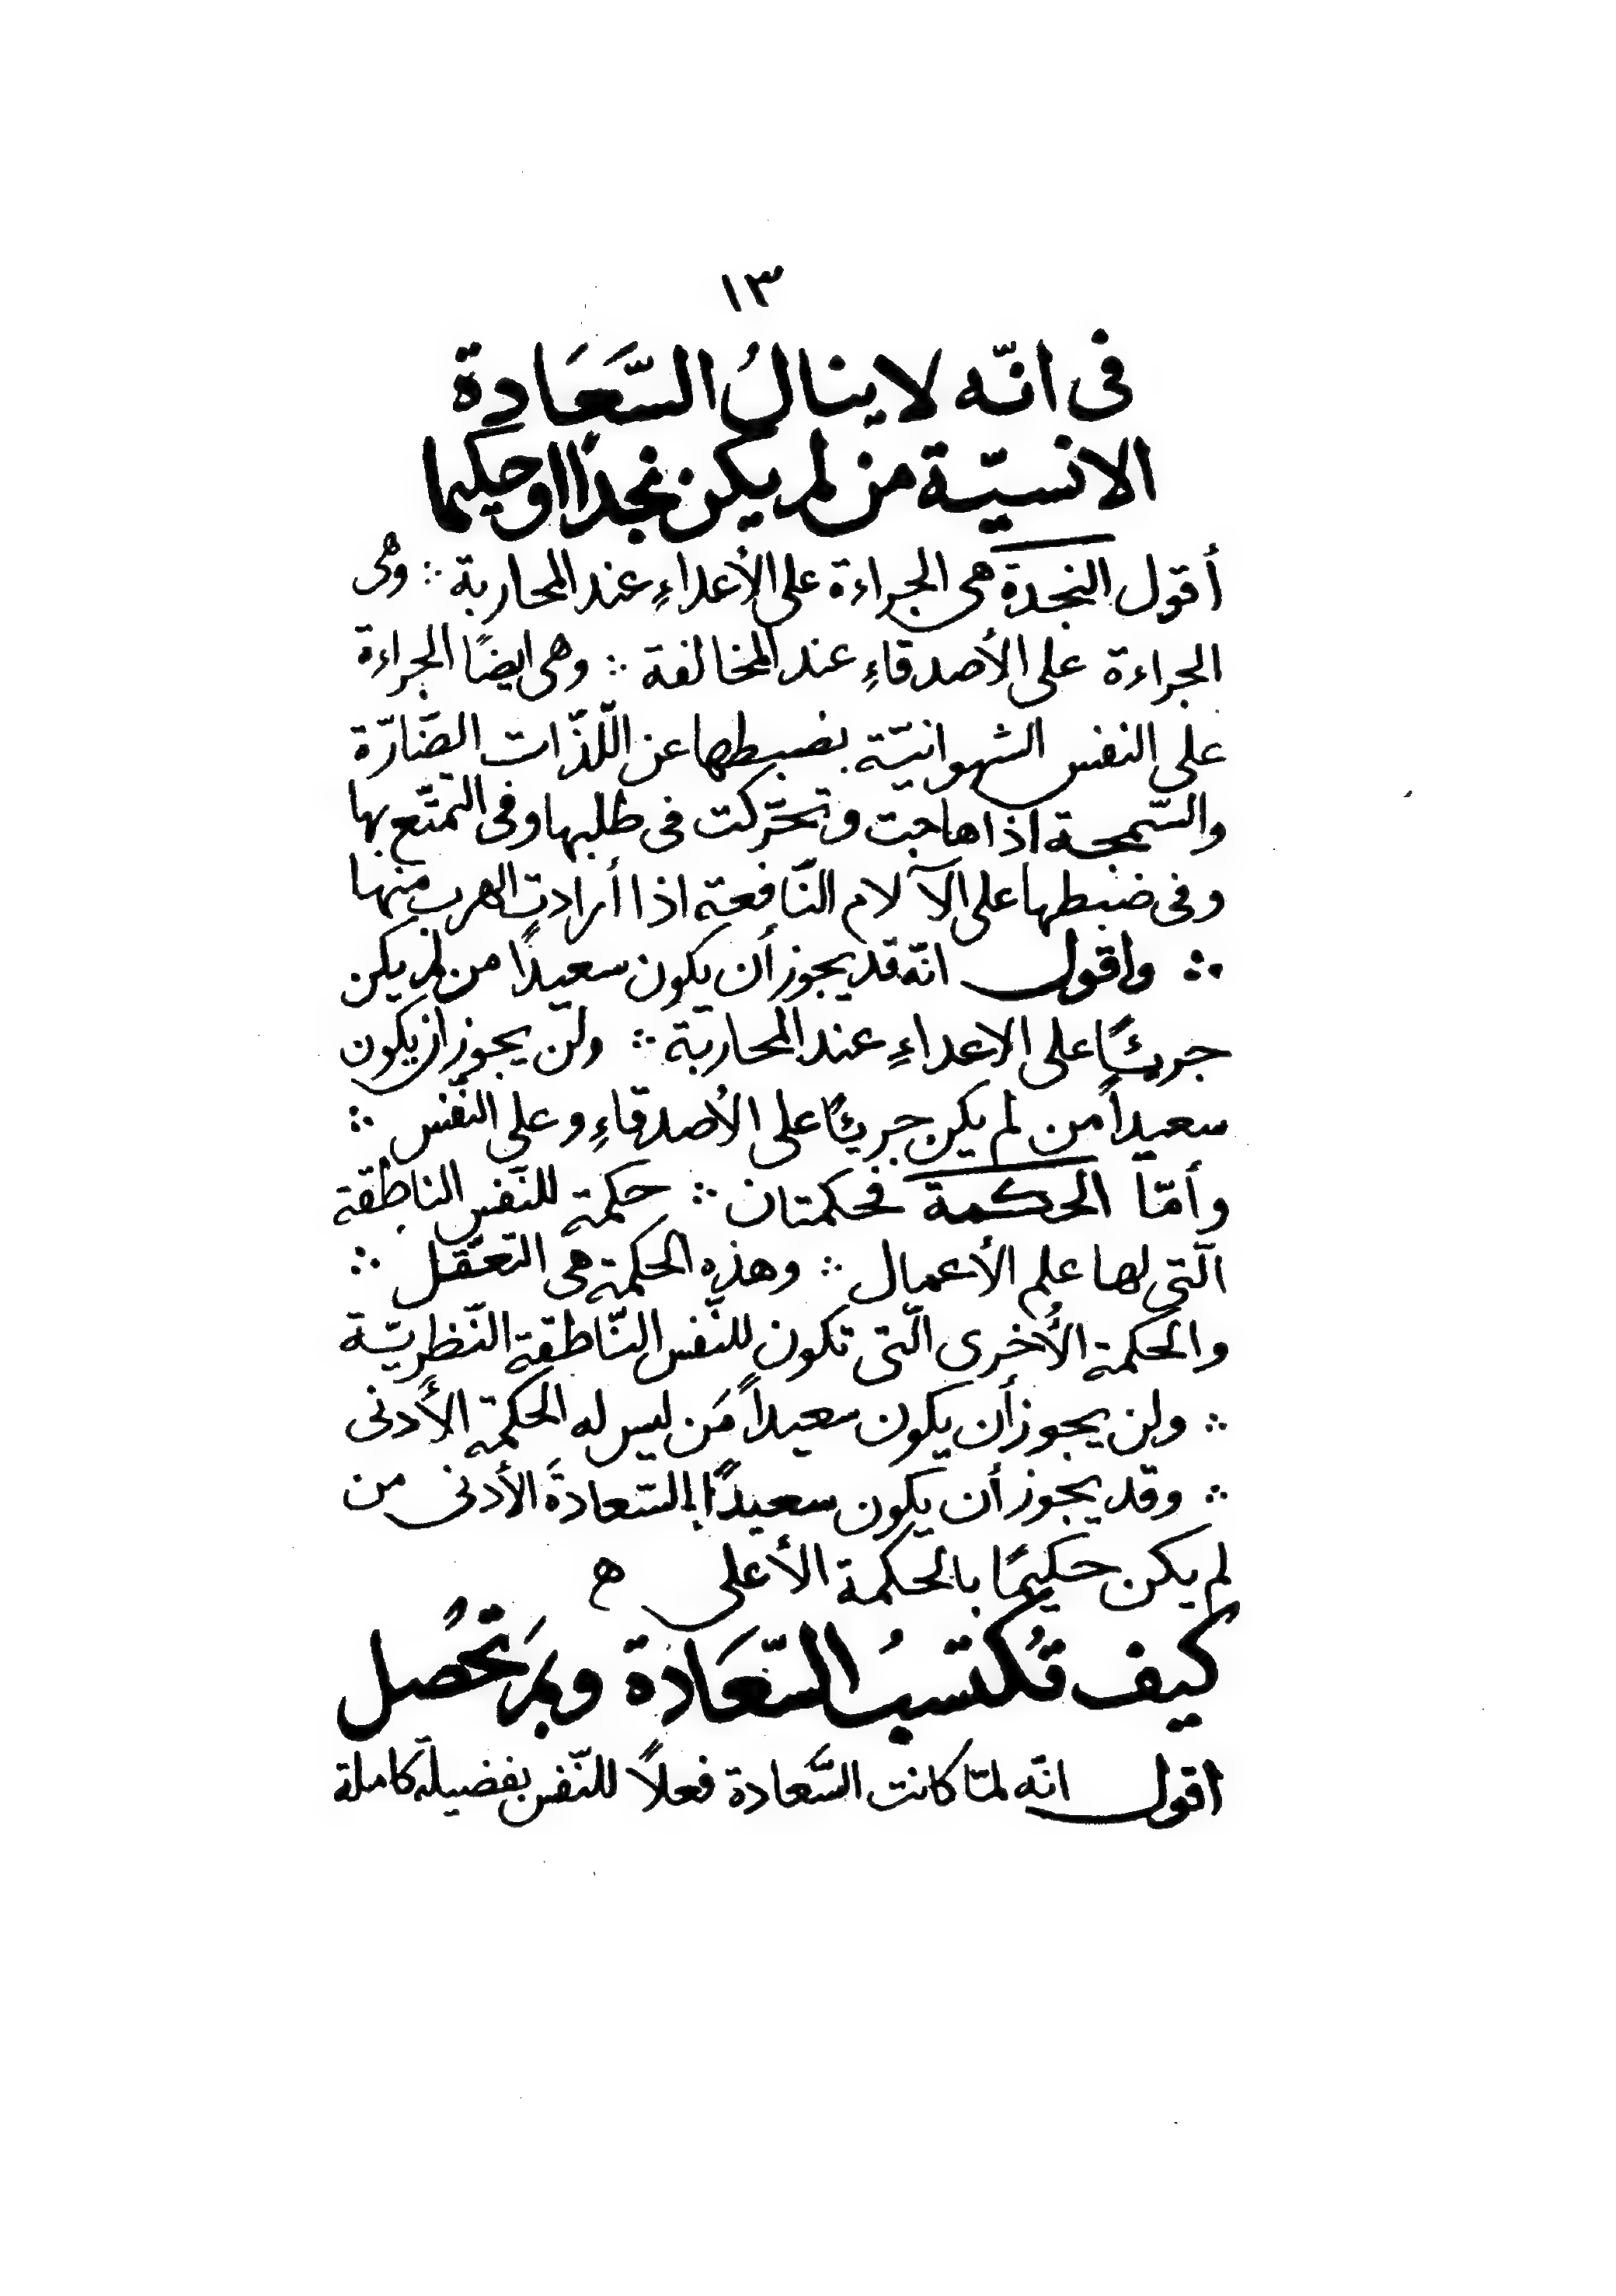 ١٣
فى انّه لا ينالُ السَّعَادة
الانسيّة من لم يكن نجدًا اوحكيما
أقول النجدة هى الجراءة على الأعداءِ عند المحاربة ∴ وهى
الجراءة على الأصدقاءِ عند المخالفة ∴ وهى ايضًا الجراءة
على النفس الشهوانيّة بضبطها عن اللّذّات الضّارّة
والسّمجة اذا هاجت وتحرّكت فى طلبها وفى التمتّع بها
وفى ضبطها على الآلام النّافعة اذا أرادت الهرب منها
∴ واقول انّه قد يجوز أن يكون سعيدًا من لم يكن
جريئًا على الاعداءِ عند المحاربة ∴ ولن يجوز ان يكون
سعيداً من لم يكن جريئًا على الأصدقاءِ وعلى النّفس ∴
وأمّا الحكمة فحكمتان ∴ حكمة للنّفس الناطقة
الّتى لها علم الأعمال ∴ وهذه الحكمة هى التعقّل ∴
والحكمة الأُخرى الّتى تكون للنّفس النّاطقة النّظريّة
∴ ولن يجوز أن يكون سعيداً مَن ليس له الحكمة الأدنى
∴ وقد يجوز أن يكون سعيدًا بالسّعادة الأدنى من
لم يكن حكيمًا بالحكمة الأعلى ه
كيف تُكتسبُ السّعَادة وبمَ تحُصل
اقول انّه لمّا كانت السَّعادة فعلاً للنّفس بفضيلة كاملة